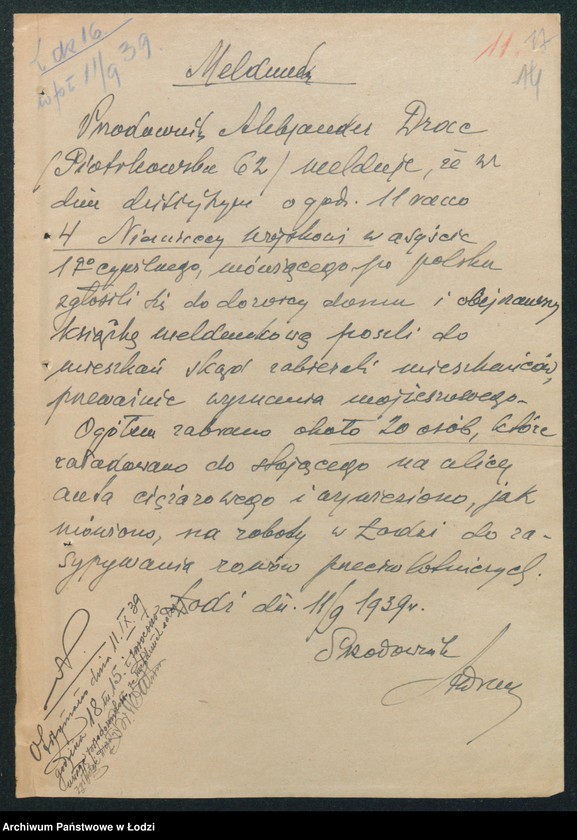 Ł dz 16
wpł 11/9 39
11. 17
14
Meldunek
Przodownik Aleksander Drac
/Piotrkowska 62/ melduje, że w
dniu dzisiejszym o godz. 11 rano
4 Niemieccy wojskowi w asyście
1go cywilnego, mówiącego po polsku
zgłosili się do dozorcy domu i obejrzawszy
książkę meldunkową poszli do
mieszkań skąd zabierali mieszkańców,
przeważnie wyznania mojżeszowego.
Ogółem zabrano około 20 osób, które
załadowano do stojącego na ulicy
auta ciężarowego i wywieziono, jak
mówiono, na roboty w Łodzi do za-
sypywania rowów przeciwlotniczych.
Łódź dn. 11/9 1939 r.
Przodownik
ADrac
Otrzymano dnia 11.IX.39
godzina 18 m. 15.
Archiwum Państwowe w Łodzi